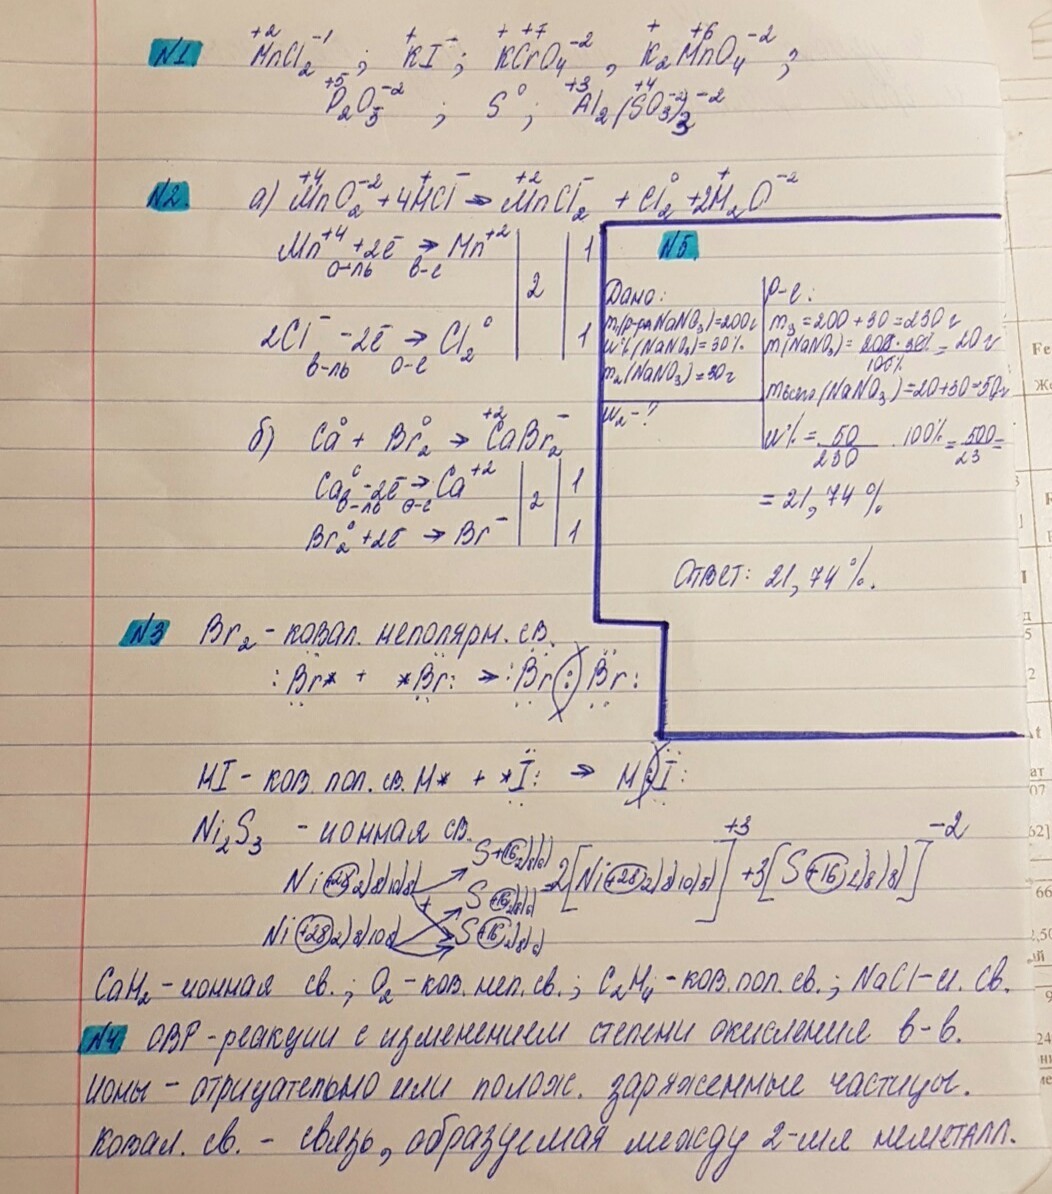 N1 Mn⁺²Cl₂⁻¹ ; K⁺I⁻ ; K⁺Cr⁺⁷O₄⁻² , K₂⁺Mn⁺⁶O₄⁻² ;
P₂⁺⁵O₅⁻² ; S⁰ ; Al₂⁺³(S⁺⁴O₃⁻²)₃⁻²
N2. а) Mn⁺⁴O₂⁻² + 4H⁺Cl⁻ → Mn⁺²Cl₂⁻ + Cl₂⁰ + 2H₂⁺O⁻²
Mn⁺⁴ + 2ē → Mn⁺² | | 1
о-ль в-е
2
2Cl⁻ - 2ē → Cl₂⁰ | | 1
в-ль о-е
б) Ca⁰ + Br₂⁰ → Ca⁺²Br₂⁻
Ca⁰ - 2ē → Ca⁺² | 2 | 1
в-ль о-е
Br₂⁰ + 2ē → Br⁻ | | 1
N5.
Дано:
m(р-ра NaNO₃) = 200г
w%(NaNO₃) = 30%
m₂(NaNO₃) = 30г
w₂ - ?
Р-е:
m₃ = 200 + 30 = 230 г
m(NaNO₃) = = 20 г
100%
mвсего(NaNO₃) = 20 + 30 = 50г
w% = 50/230 · 100% = 500/23 =
= 21,74 %
Ответ: 21,74 %.
N3 Br₂ - ковал. неполярн. св.
:Br* + *Br: → :Br(:)Br:
HI - ков. пол. св. H* + *I: → H(:)I:
Ni₂S₃ - ионная св.
S+16)2)8)6)
Ni(+28)2)8)10)8) 2[Ni(+28)2)8)10)5)]⁺³ + 3[S(+16)2)8)8)]⁻²
S(+16)2)8)6)
Ni(+28)2)8)10)8) S(+16)2)8)6)
CaH₂ - ионная св. ; O₂ - ков. неп. св. ; C₂H₄ - ков. пол. св. ; NaCl - и. св.
N4 ОВР - реакции с изменением степени окисления в-в.
Ионы - отрицательно или полож. заряженные частицы.
Ковал. св. - связь, образуемая между 2-мя неметалл.